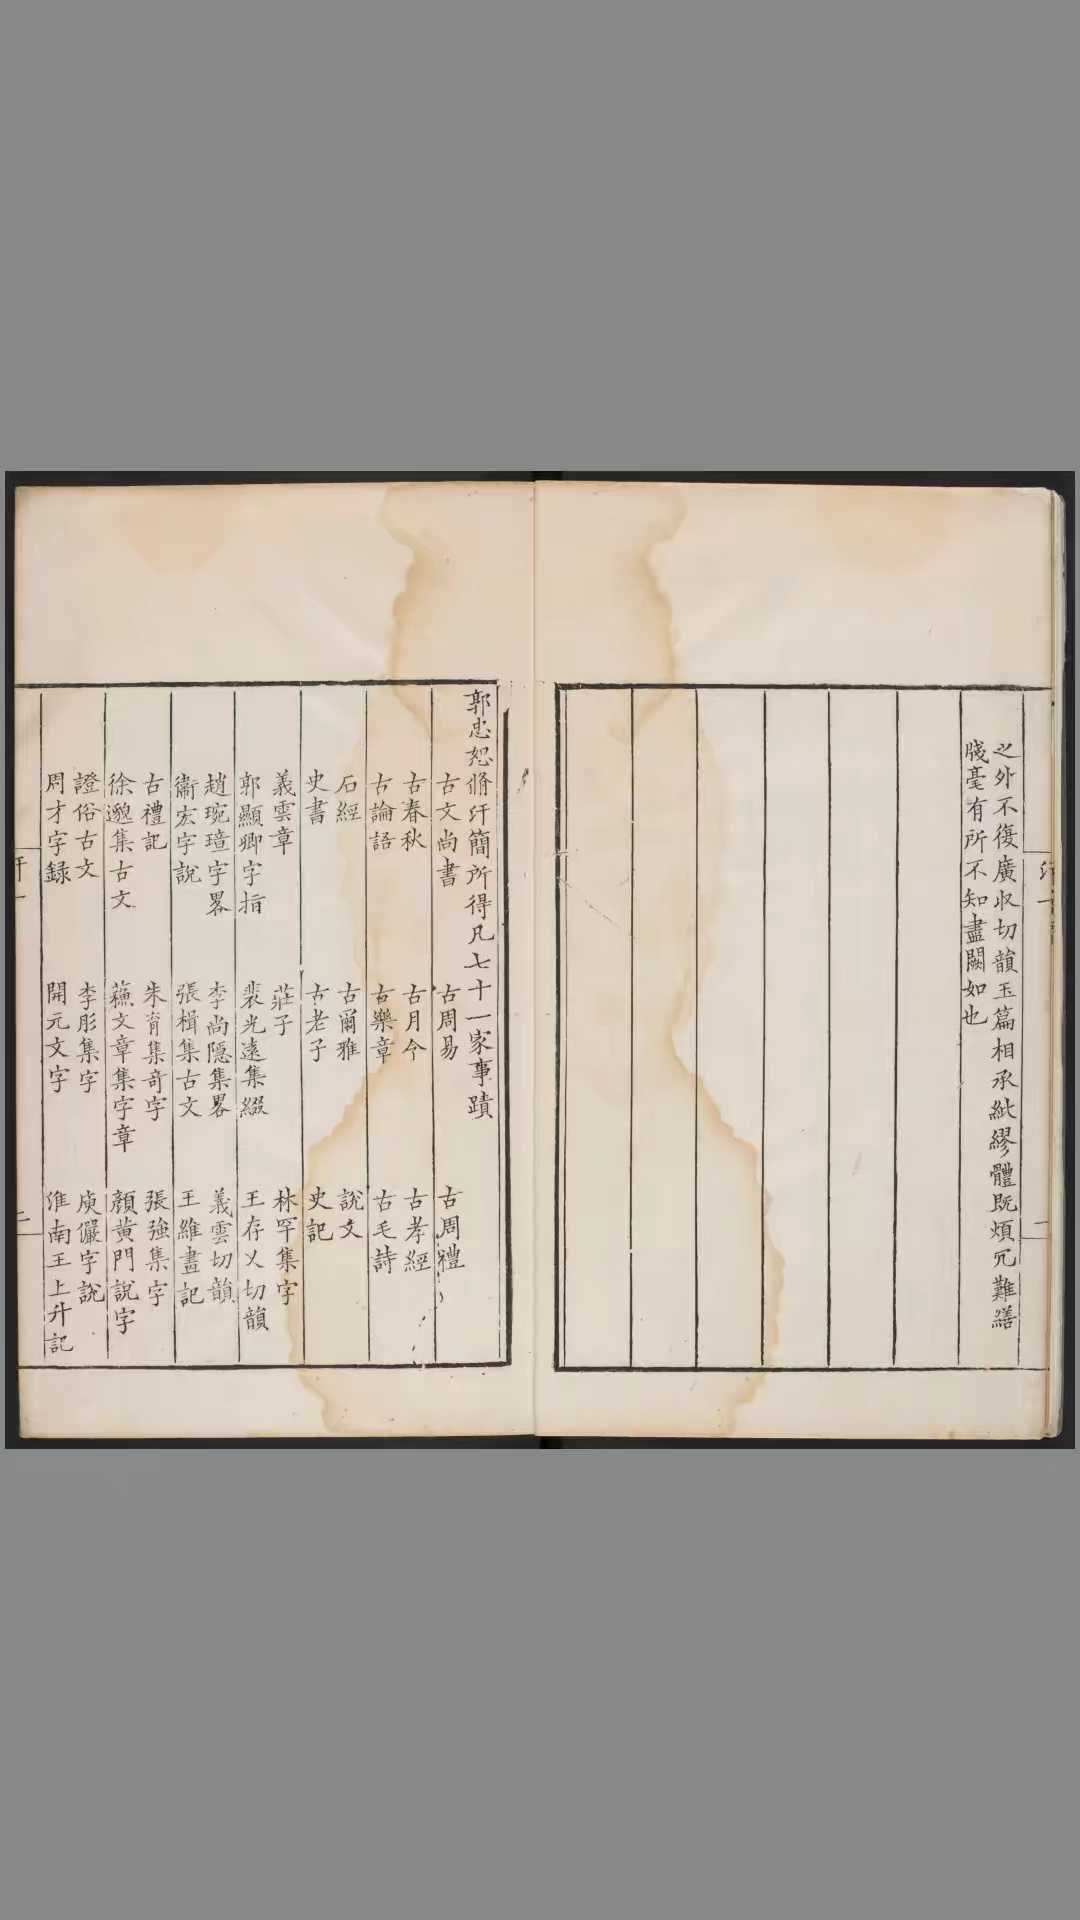 之外不復廣收切韻玉篇相承紕繆體既煩冗難繕
牋毫有所不知盡闕如也
郭忠恕脩汗簡所得凡七十一家事蹟
古文尚書 古周易 古周禮
古春秋 古月令 古孝經
古論語 古樂章 古毛詩
石經 古爾雅 說文
史書 古老子 史記
義雲章 莊子 林罕集字
郭顯卿字指 裴光遠集綴 王存乂切韻
趙琬璋字畧 李尚隱集畧 義雲切韻
衞宏字說 張楫集古文 王維畫記
古禮記 朱育集奇字 張強集字
徐邈集古文 蘓文章集字章 顏黄門說字
證俗古文 李彤集字 庾儼字說
周才字録 開元文字 淮南王上升記